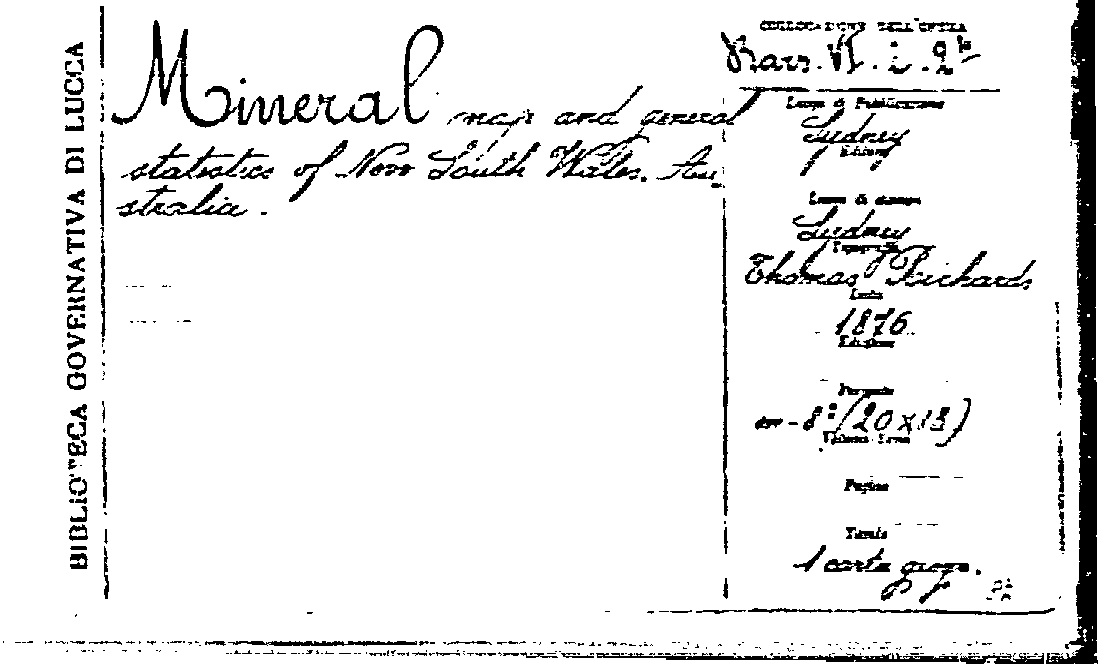 BIBLIOTECA GOVERNATIVA DI LUCCA
Mineral map and general
statistics of New South Wales. Au-
stralia.
COLLOCAZIONE DELL'OPERA
Luogo di Pubblicazione
Sydney
Editore
Luogo di stampa
Sydney
Thomas Richards
1876
Edizione
Formato
in-8°(20x13)
Pagine
Tavole
1 carta geogr.